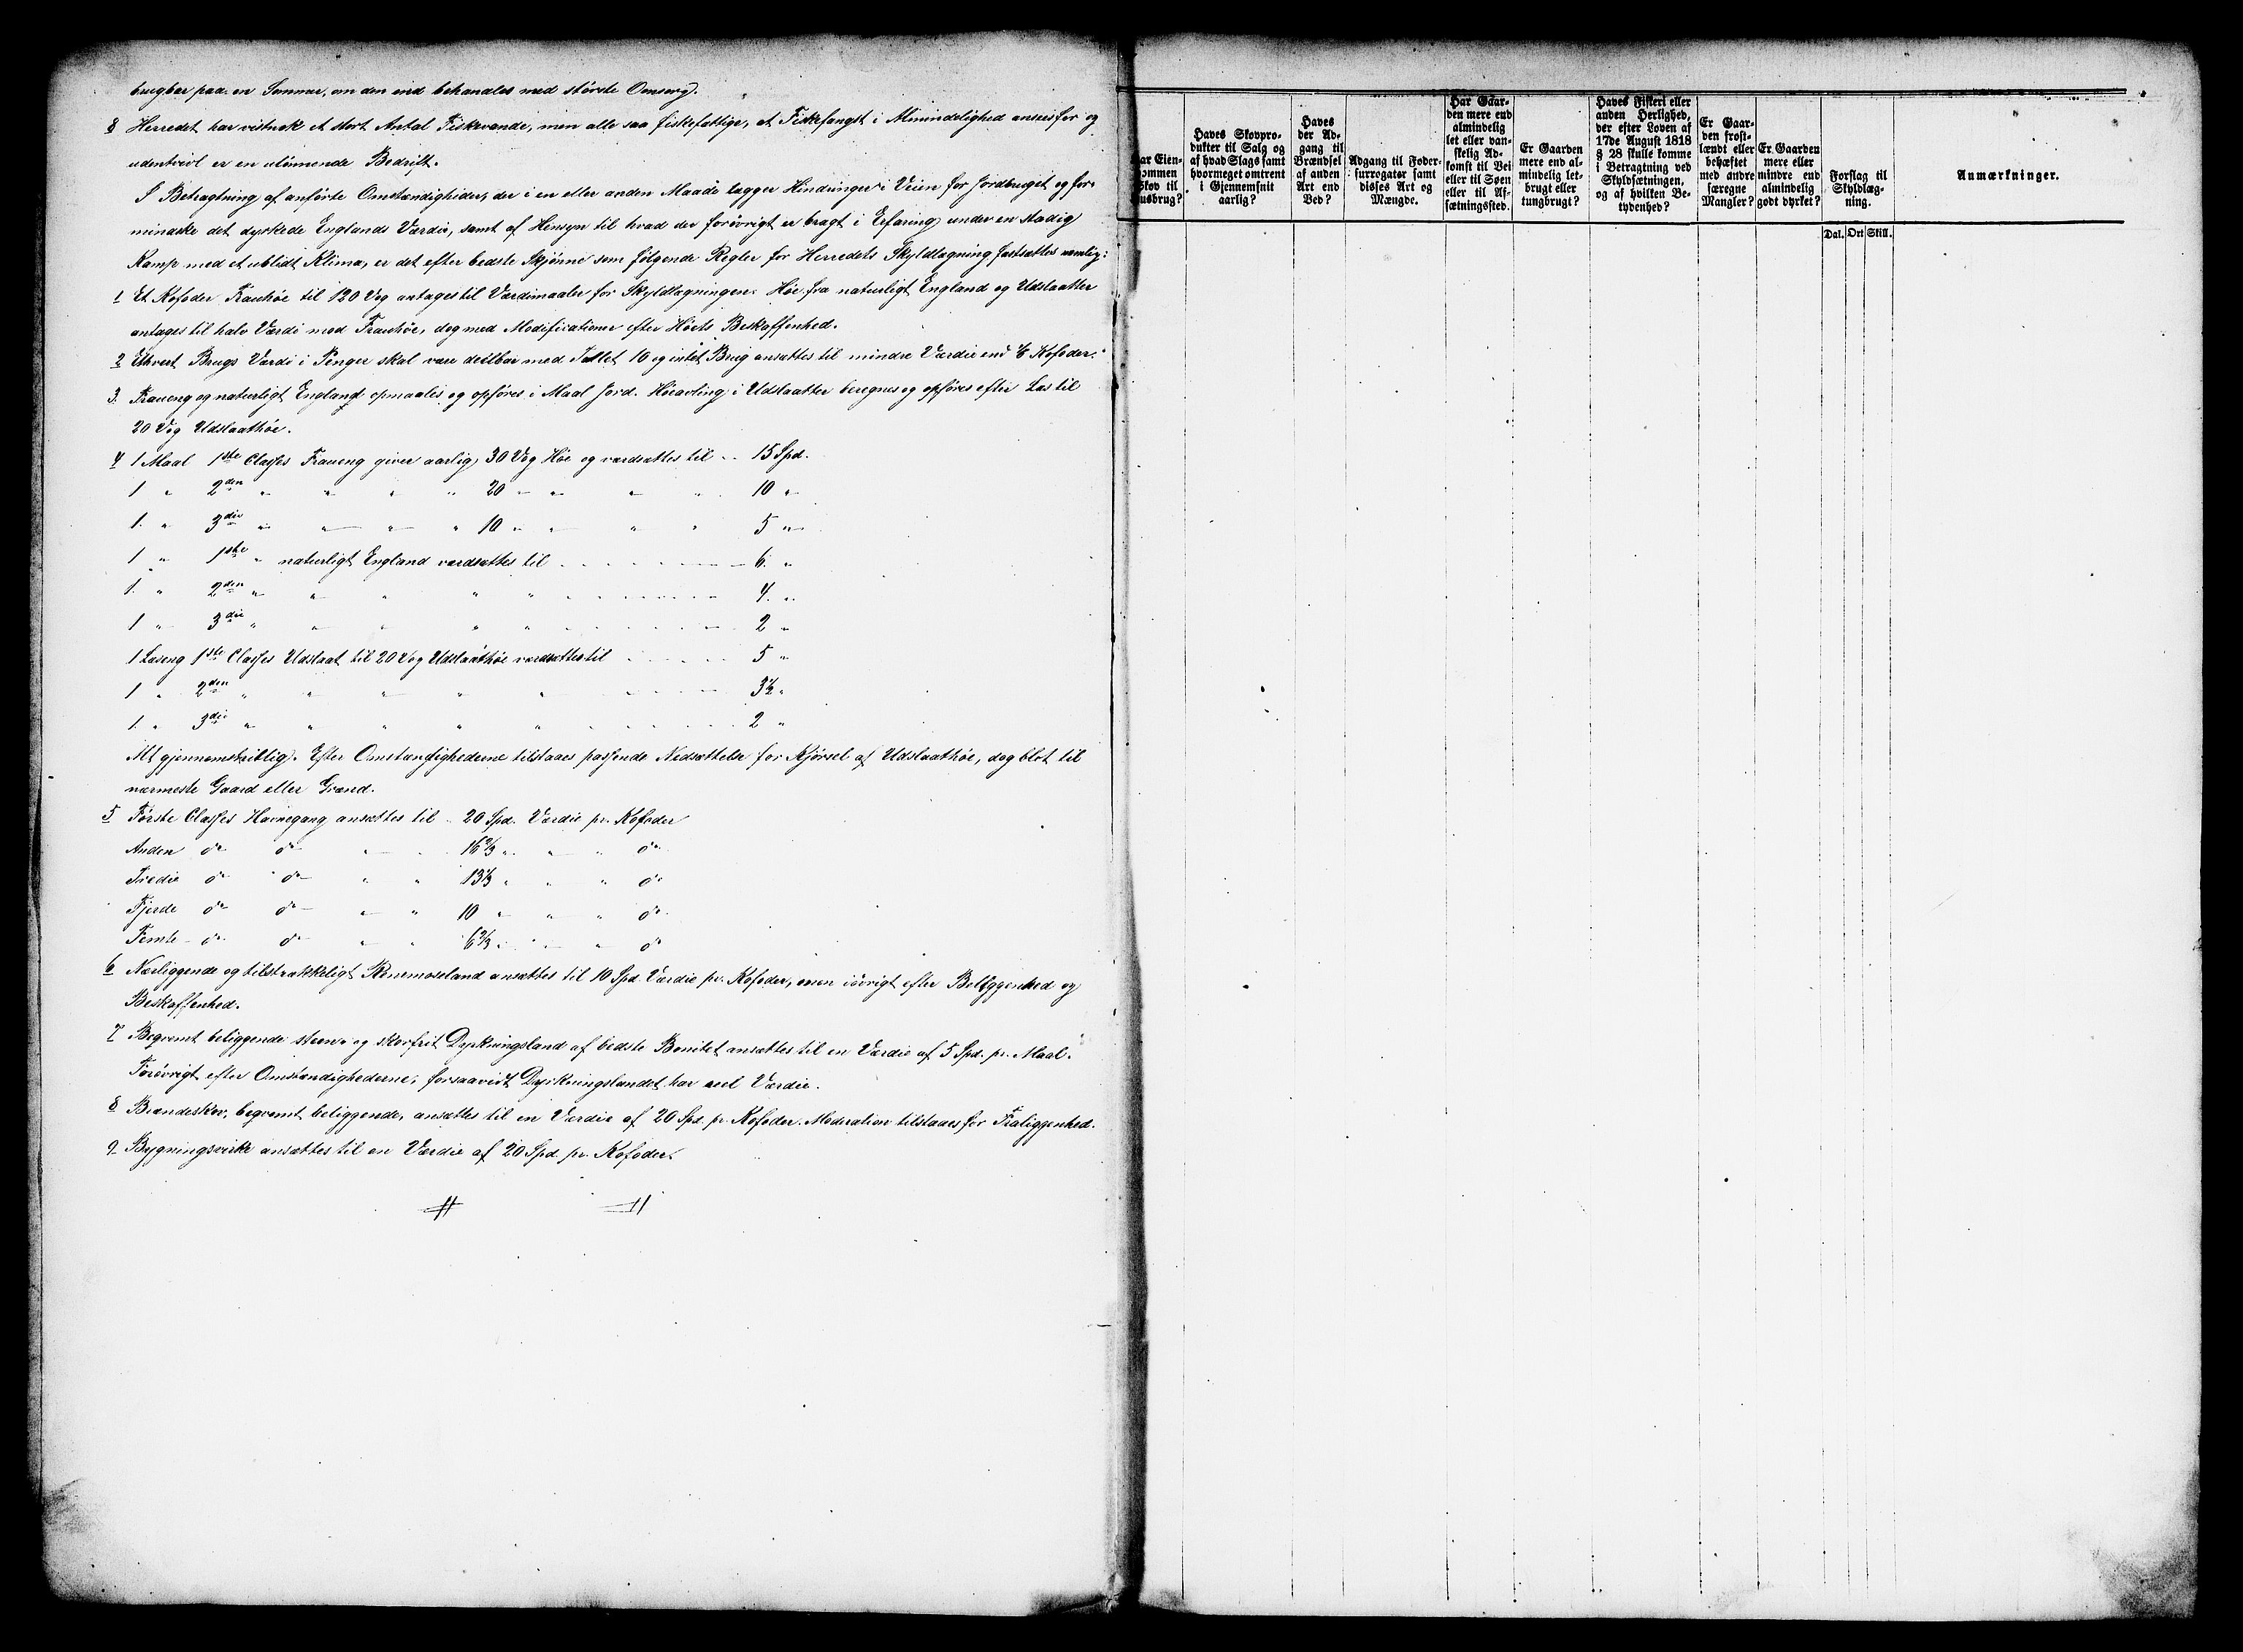 brugbar paa en Sommer, om den end behandles med störste Omsorg.
8 Herredet har vistnok et stort Antal Fiskevande, men alle saa fiskefattige, at Fiskefangst i Almindelighed ansees for og
udentvivl er en ulönnende Bedrift.
I Betragtning af anförte Omstændigheder, der i en eller anden Maade lægger Hindringer i Veien for Jordbruget og for-
mindske det dyrkede Englands Værdie, samt af Hensyn til hvad der forövrigt er bragt i Erfaring under en stadig
Kamp med et ublidt Klima, er det efter bedste Skjönne som fölgende Regler for Herredets Skyldlægning fastsættes nemlig:
1 Et Kofoder Træuhöe til 120 Vog antages til Værdimaaler for Skyldlægningen. Höe fra naturligt England og Udslaatter
antages til halv Værdi mod Træuhöe, dog med Modificationer efter Höets Beskaffenhed.
2 Ethvert Brugs Værdi i Penger skal være deelbar med Tallet 10 og intet Brug ansættes til mindre Værdie end Kofoder.
3. Træueng og naturligt England opmaales og opföres i Maal Jord. Höeavling i Udslaatter beregnes og opföres efter Læs til
20 Vog Udslaathöe.
4 1 Maal 1ste Classes Træueng giver aarlig 30 Vog Höe og værdsættes til .. 15 Spd.
1 " 2den " " " " 20 " " " " 10 "
1. " 3die " " " " 10 " " " " 5 "
1 " 1ste " naturligt England værdsættes til . . . . . . . 6. "
1. " 2den " " " " " . . . . . . 4. "
1 " 3die " " " " " . . . . . . 2 "
1 Læseng 1ste Classes Udslaat til 20 Vog Udslaathöe værdsættes til . . . . . 5 "
1 " 2den " " " " " . . . . 3½ "
1. " 3die " " " " " . . . . . 2 "
Alt gjennemsnitlig. Efter Omstændighederne tilstaaes passende Nedsættelse for Kjörsel af Udslaathöe, dog blot til
nærmeste Gaard eller Grænd.
5 Förste Classes Havnegang ansættes til . 20 Spd. Værdie pr. Kofoder
Anden do do " . 16⅔ " " " do
Tredie do do " " 13⅓ " " " do
Fjerde do do " " 10 " " " do
Femte do do " " 6⅔ " " " do
6 Nærliggende og tilstrækkeligt Renemoseland ansættes til 10 Spd. Værdie pr. Kofoder, men iövrigt efter Beliggenhed og
Beskaffenhed.
7 Beqvemt beliggende steen- og skovfrit Dyrkningsland af bedste Bonitet ansættes til en Værdie af 5 Spd. pr. Maal.
Forövrigt efter Omstændighederne, forsaavidt Dyrkningslandet har reel Værdie.
8 Brændeskov, beqvemt beliggende, ansættes til en Værdie af 20 Spd. pr. Kofoder. Moderation tilstaaes for Fraliggenhed.
9 Bygningsvirke ansættes til en Værdie af 20 Spd. pr. Kofoder.
Har Eien-
dommen
Skov til
Husbrug?
Haves Skovpro-
dukter til Salg og
af hvad Slags samt
hvormeget omtrent
i Gjennemsnit
aarlig?
Haves
der Ad-
gang til
Brændsel
af anden
Art end
Ved?
Adgang til Foder-
surrogater samt
disses Art og
Mængde.
Har Gaar-
den mere end
almindelig
let eller van-
skelig Ad-
komst til Vei
eller til Søen
eller til Af-
sætningssted.
Er Gaarden
mere end al-
mindelig let-
brugt eller
tungbrugt?
Haves Fiskeri eller
anden Herlighed,
der efter Loven af
17de August 1818
§ 28 skulle komme
i Betragtning ved
Skyldsætningen,
og af hvilken Be-
tydenhed?
Er Gaar-
den frost-
lændt eller
behæftet
med andre
særegne
Mangler?
Er Gaarden
mere eller
mindre end
almindelig
godt dyrket?
Forslag til
Skyldlæg-
ning.
Dal. Ort Skill.
Anmærkninger.